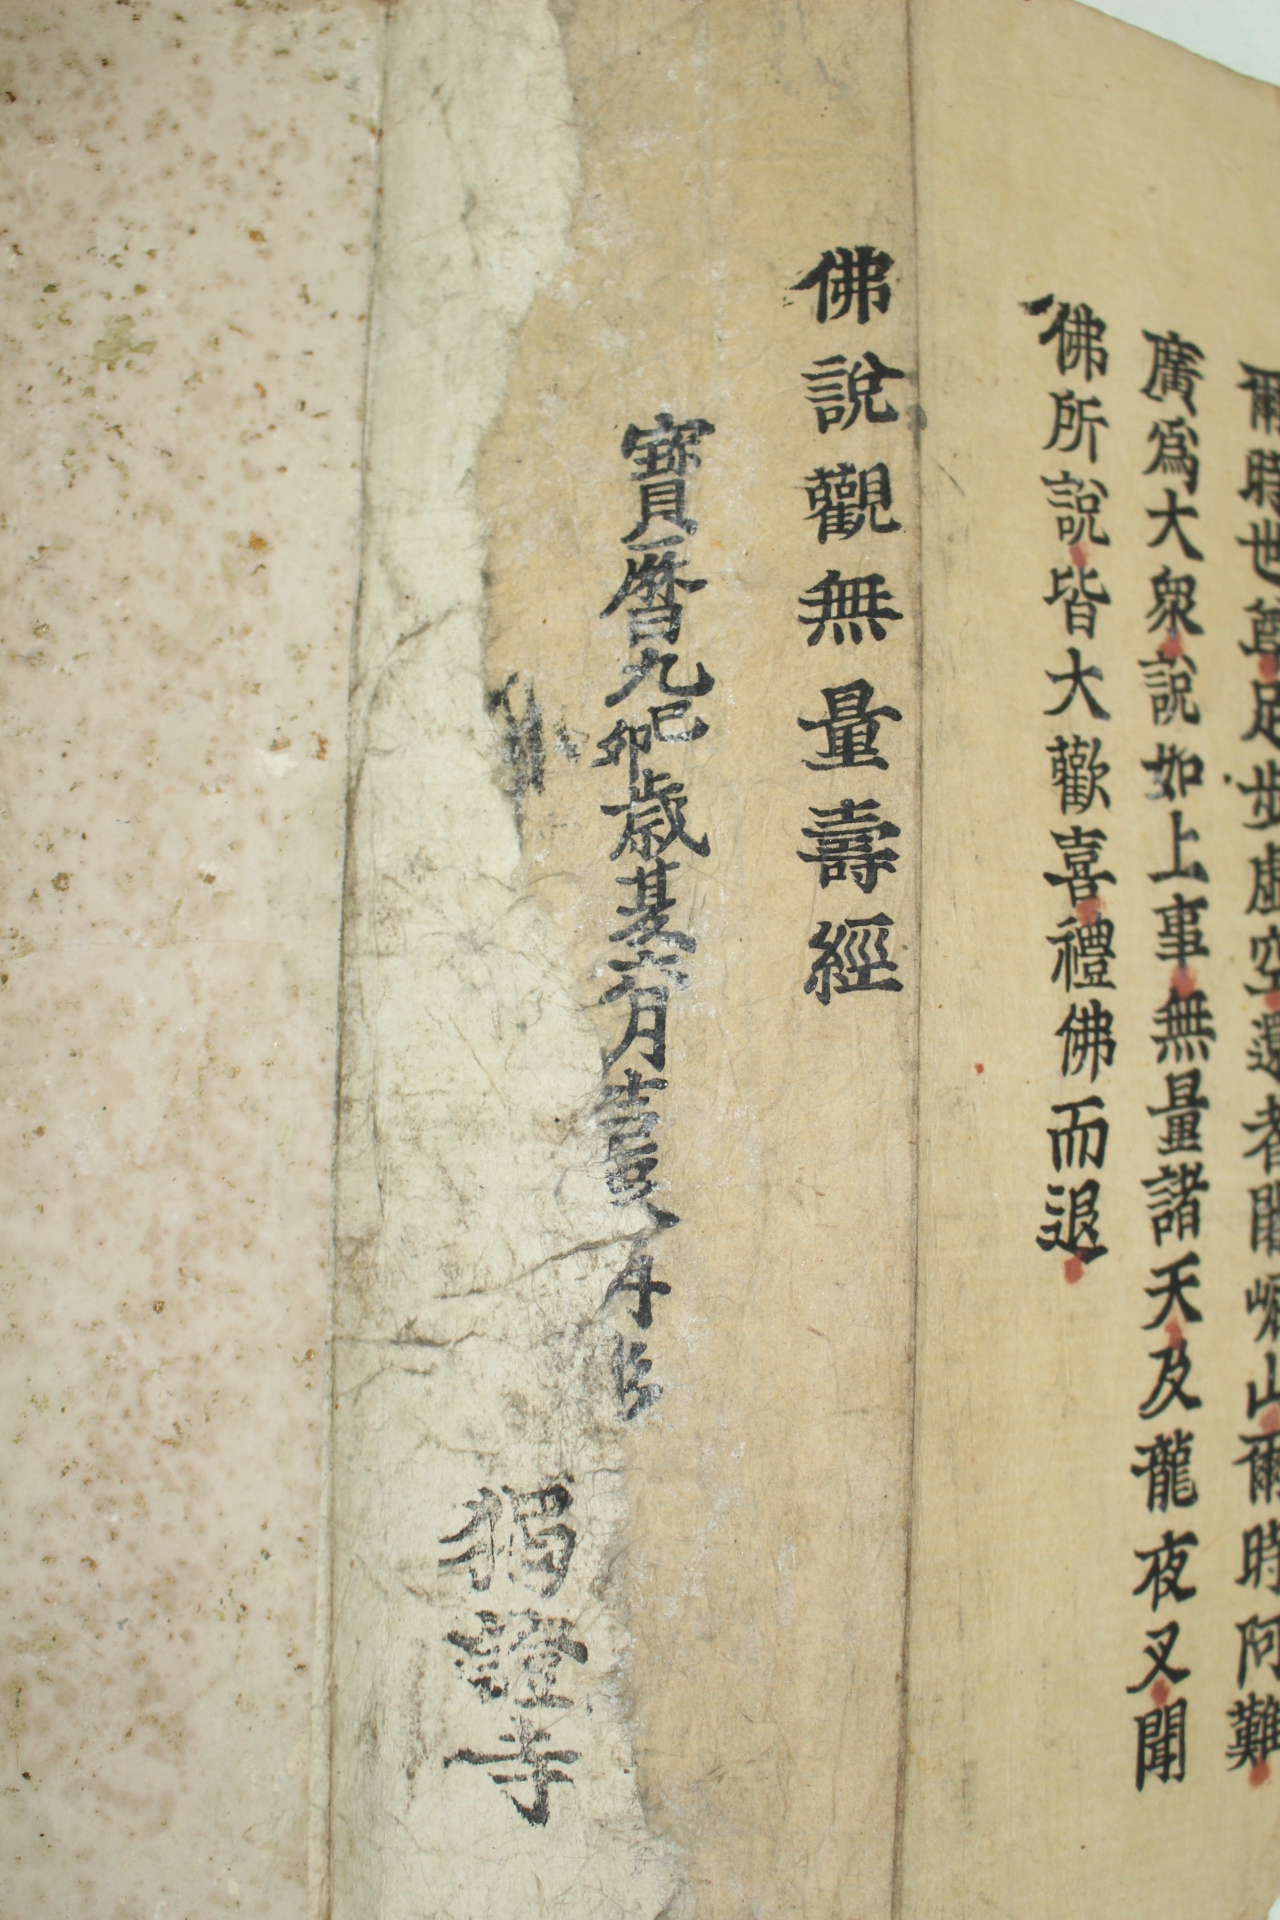 爾時世尊足步虛空還耆闍崛山爾時阿難
廣爲大衆說如上事無量諸天及龍夜叉聞
佛所說皆大歡喜禮佛而退
佛說觀無量壽經
寶曆九己卯歲
六月
證寺